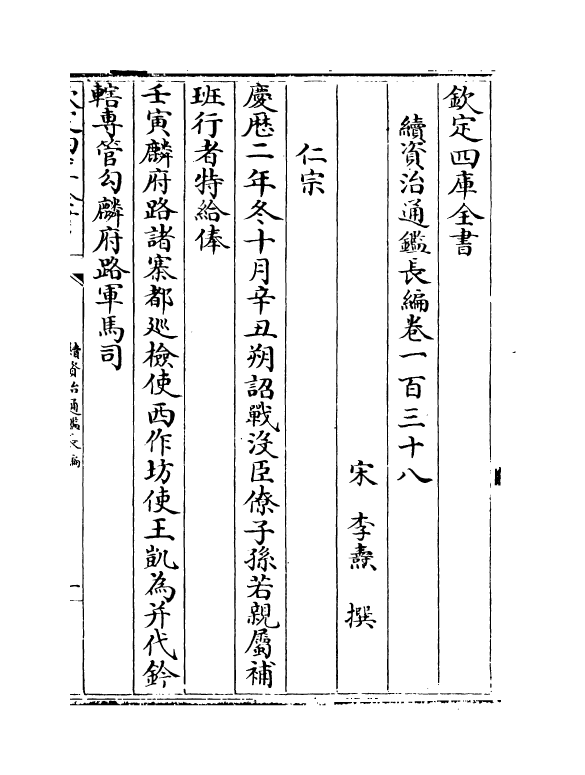 欽定四庫全書
續資治通鑑長編卷一百三十八
宋 李燾 撰
仁宗
慶歴二年冬十月辛丑朔詔戰没臣僚子孫若親屬補
班行者特給俸
壬寅麟府路諸寨都廵檢使西作坊使王凱為并代鈐
轄專管勾麟府路軍馬司
續資治通鑑長編
一